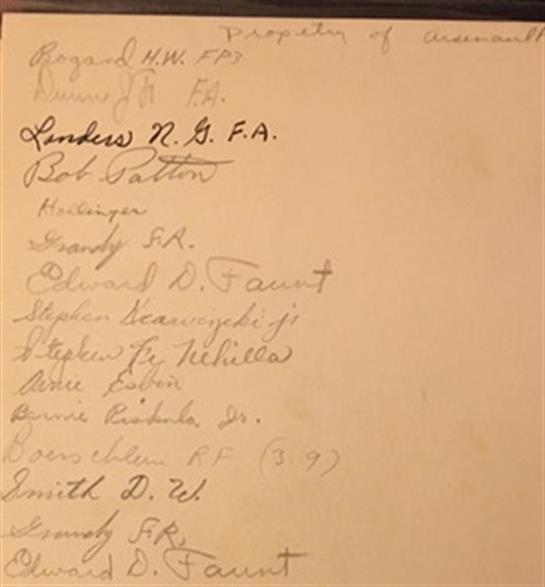 Propetry of Arsenault
Bogard H.W. FP3
Dunne J F.A.
Landers N. G. F.A.
Bob Patton
Hollinger
Grandy F.R.
Edward D. Faunt
Stephen jr
Stephen Nehilla
Arnie Esbin
Bernie Piskula Jr.
Boerschlein R.F (3.9)
Smith D. W.
Grundy F.R.
Edward D. Faunt